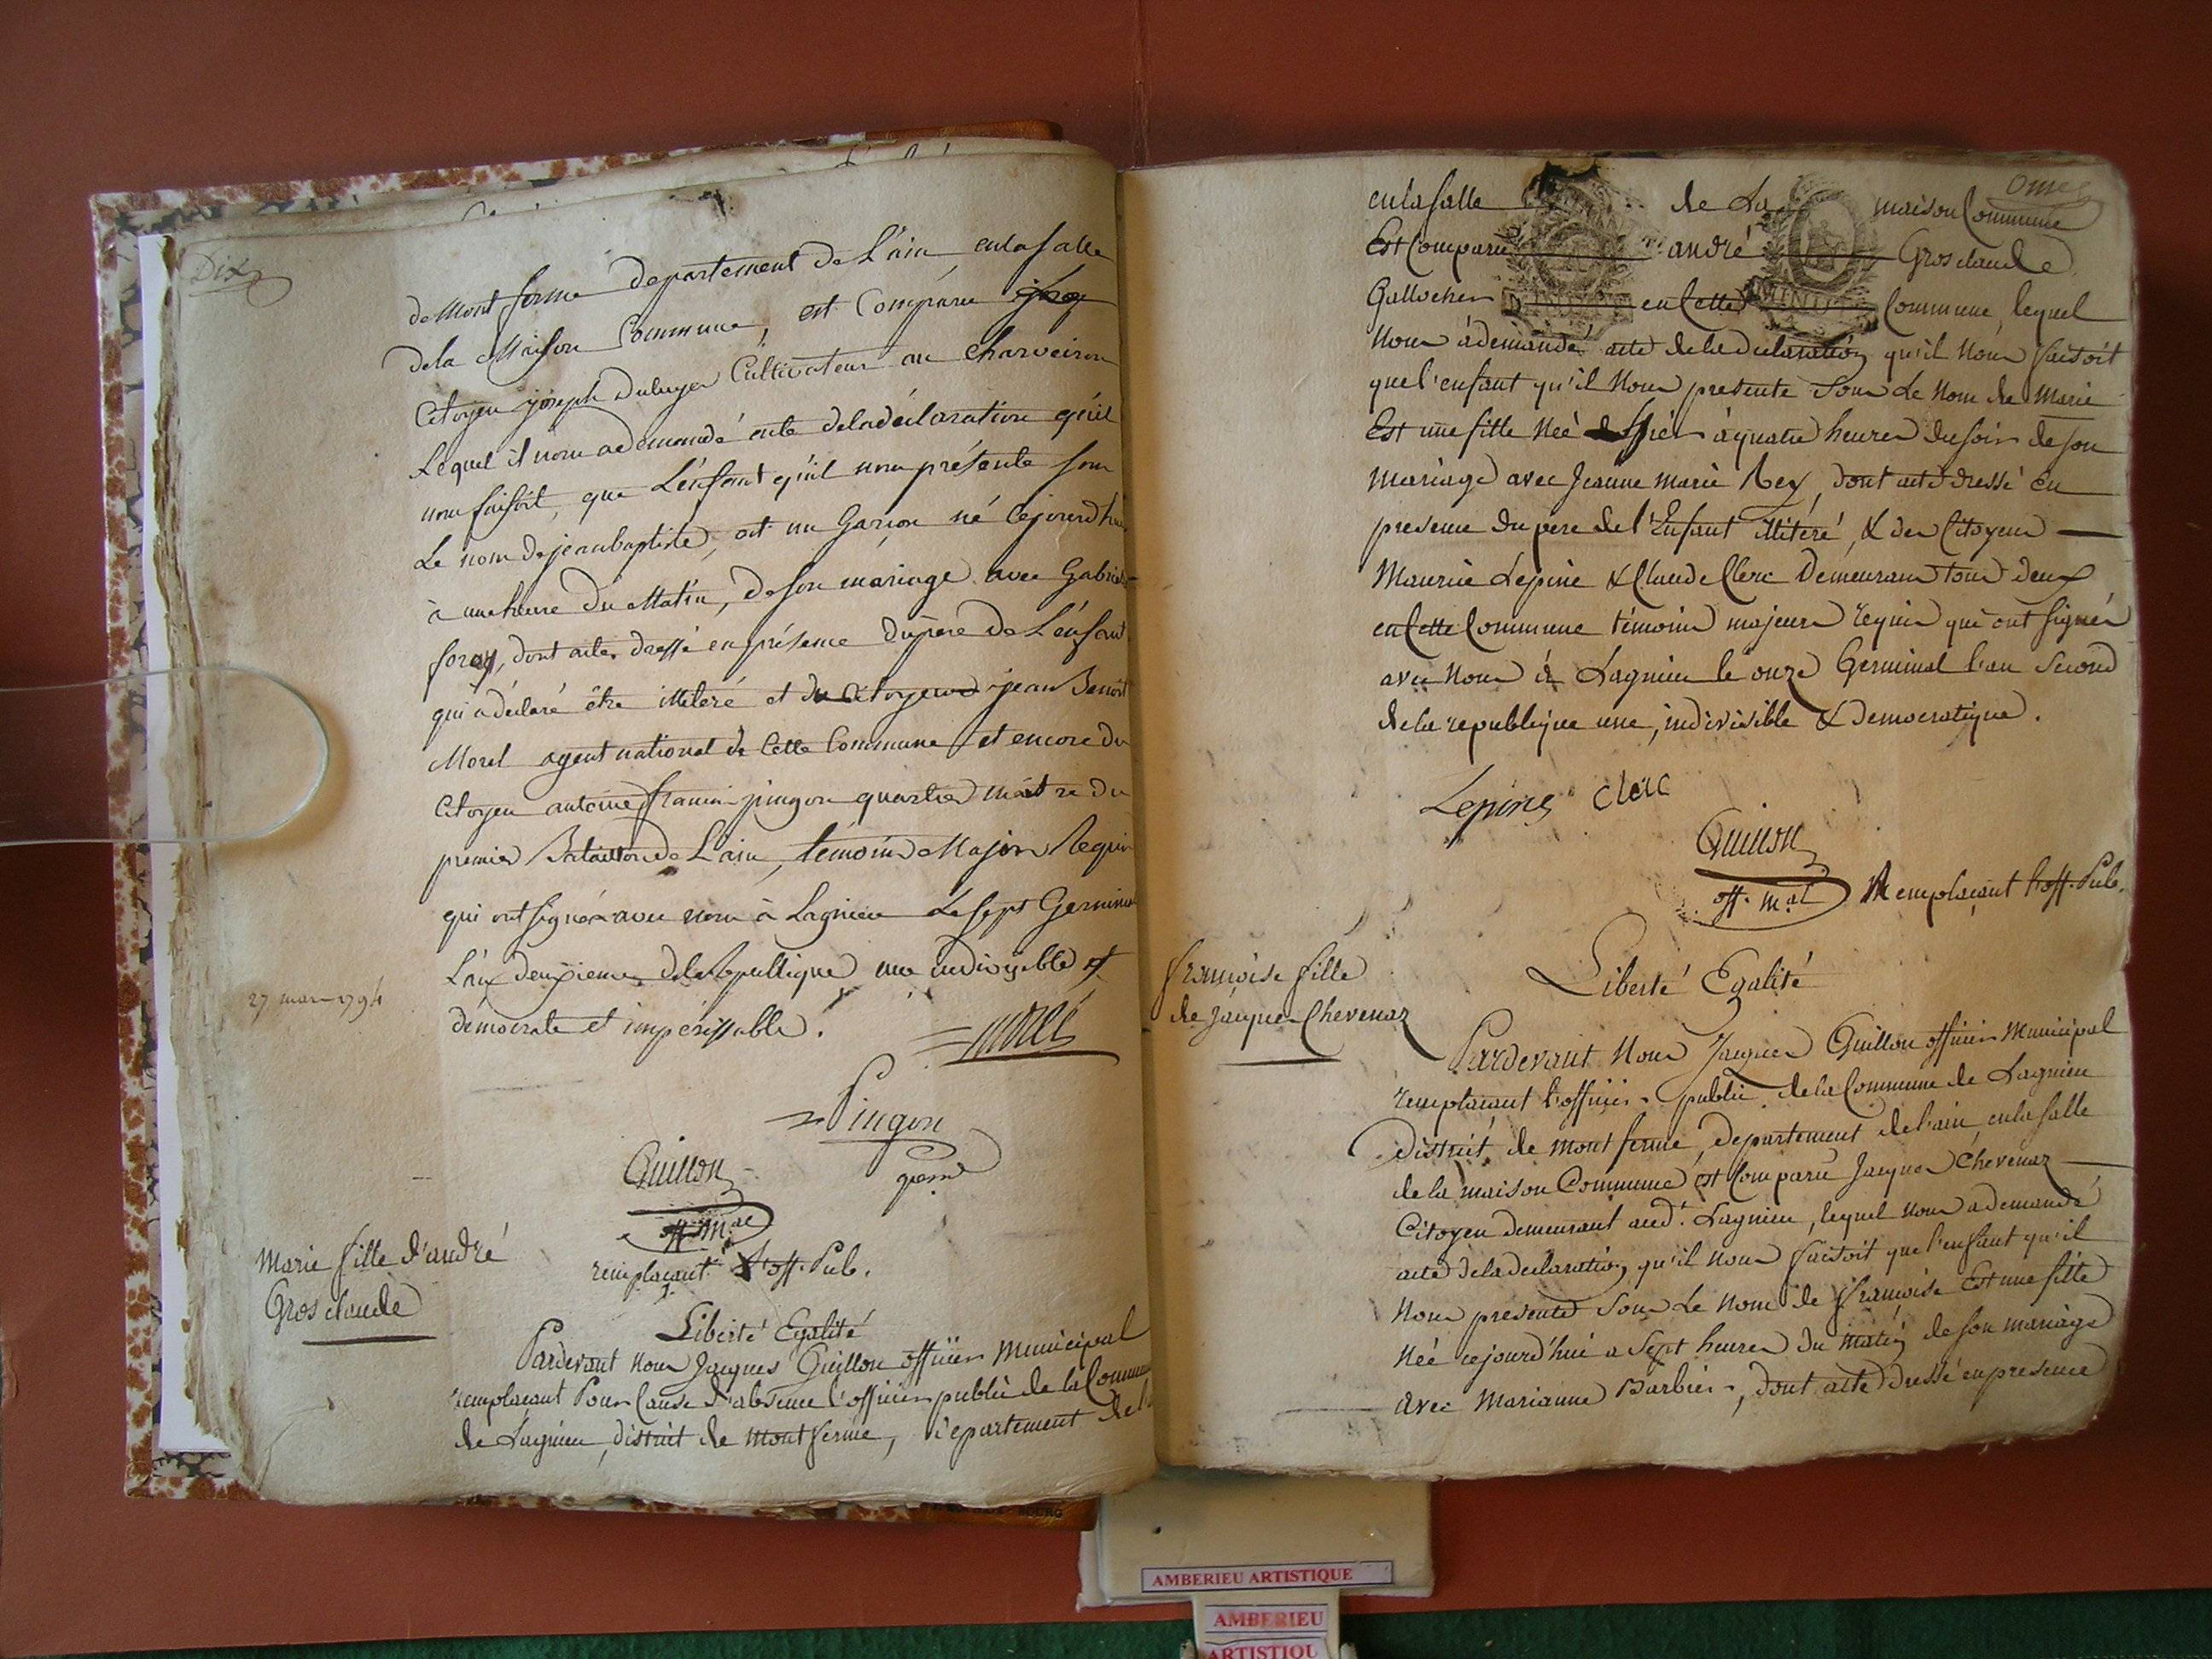 Dix
de Mont ferme departement de L'ain enlasalle
dela Maison Commune, est Comparu
Citoyen joseph Dubuyer Cultivateur au Charveiron
Lequel il nous ademandé acte deladéclaration qu'il
nous faisoit, que L'enfant qu'il nous présente sous
Le nom de jeanbaptiste, est un Garçon né Cejourd'hui
à une heure du Matin, de son mariage avec Gabriel
foray, dont acte dressé en présence du père de L'enfant
qui a déclaré être illiteré et du Citoyen jean Benoit
Morel agent national de Cette Commune et encore du
Citoyen antoine françois pingon quartier maitre du
premier Bataillon de L'ain, témoins Majors Requis
qui ont signés avec nous à Lagnieu Le sept Germinal
L'an deuxieme delaRepublique une indivisible et
démocrate et impérissable.
27 mars 1794
morel
Pingon
Guillon
off. m.al
remplacant L'off. Pub.
Marie fille d'andré
Grosclaude
Liberté Egalité
Pardevant nous Jacques Guillon officier Municipal
remplaçant Pour Cause d'absence l'officier public de la Commune
de Lagnieu, district de Montferme, departement de l'
Onze
enlasalle de La maison Commune
Est Comparu andré Grosclaude
Gallocher en Cette Commune, lequel
Nous à demandé acte deladeclaration qu'il Nous faisoit
que l'enfant qu'il Nous presente Sous Le Nom de Marie
Est une fille Neé hier à quatre heures du soir de son
Mariage avec Jeanne Marie Rey, dont acte dressé En
presence du pere de l'Enfant illitéré, & des Citoyens
Maurice Lepine & Claude Clerc Demeurans tous deux
en Cette Commune témoins majeurs requis qui ont signés
avec Nous à Lagnieu le onze Germinal l'an Second
dela republique une, indivisible & Democratique.
Lepine Clerc
Guillon
off. m.al Remplaçant l'off. Pub.
françoise fille
de Jacques Chevenaz
Liberté Egalité
Pardevant Nous Jacques Guillon officier Municipal
remplacant l'officier public dela Commune de Lagnieu
District de Mont ferme, departement de l'ain, enla salle
de la maison Commune est Comparu Jacques Chevenaz
Citoyen demeurant aud.t Lagnieu, lequel nous a demandé
acte deladeclaration qu'il nous faisoit que l'enfant qu'il
Nous presente Sous Le Nom de françoise Est une fille
Neé cejourd'hui a Sept heures du matin de son mariage
avec Marianne Barbier, dont acte dressé en presence
AMBERIEU ARTISTIQUE
AMBERIEU